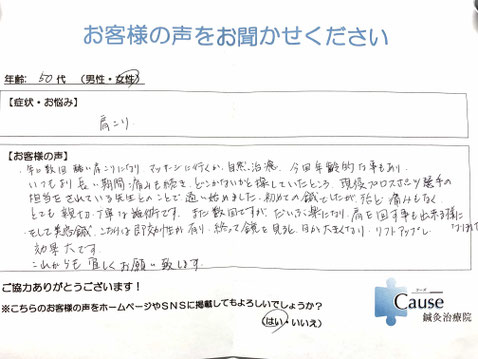 お客様の声をお聞かせください
年齢: 50代 (男性・女性)
【症状・お悩み】
肩こり
【お客様の声】
年に数回 酷い肩こりになり マッサージに行くか、自然治癒。今回年齢的な事もあり、
いつもより長い期間痛みも続き、どこかないかと探していたところ、現役プロスポーツ選手の
担当をされている先生とのことで通い始めました。初めての鍼でしたが、殆ど痛みもなく、
とても親切、丁寧な施術です。まだ数回ですが、だいぶ楽になり、肩を回す事も出来る様に
そして美容鍼、これは即効性が有り、終って鏡を見ると、目が大きくなり、リフトアップし
効果大です。
これからも宜しくお願い致します。
ご協力ありがとうございます！
※こちらのお客様の声をホームページやSNSに掲載してもよろしいでしょうか？
(はい・いいえ)
コーズ
Cause
鍼灸治療院